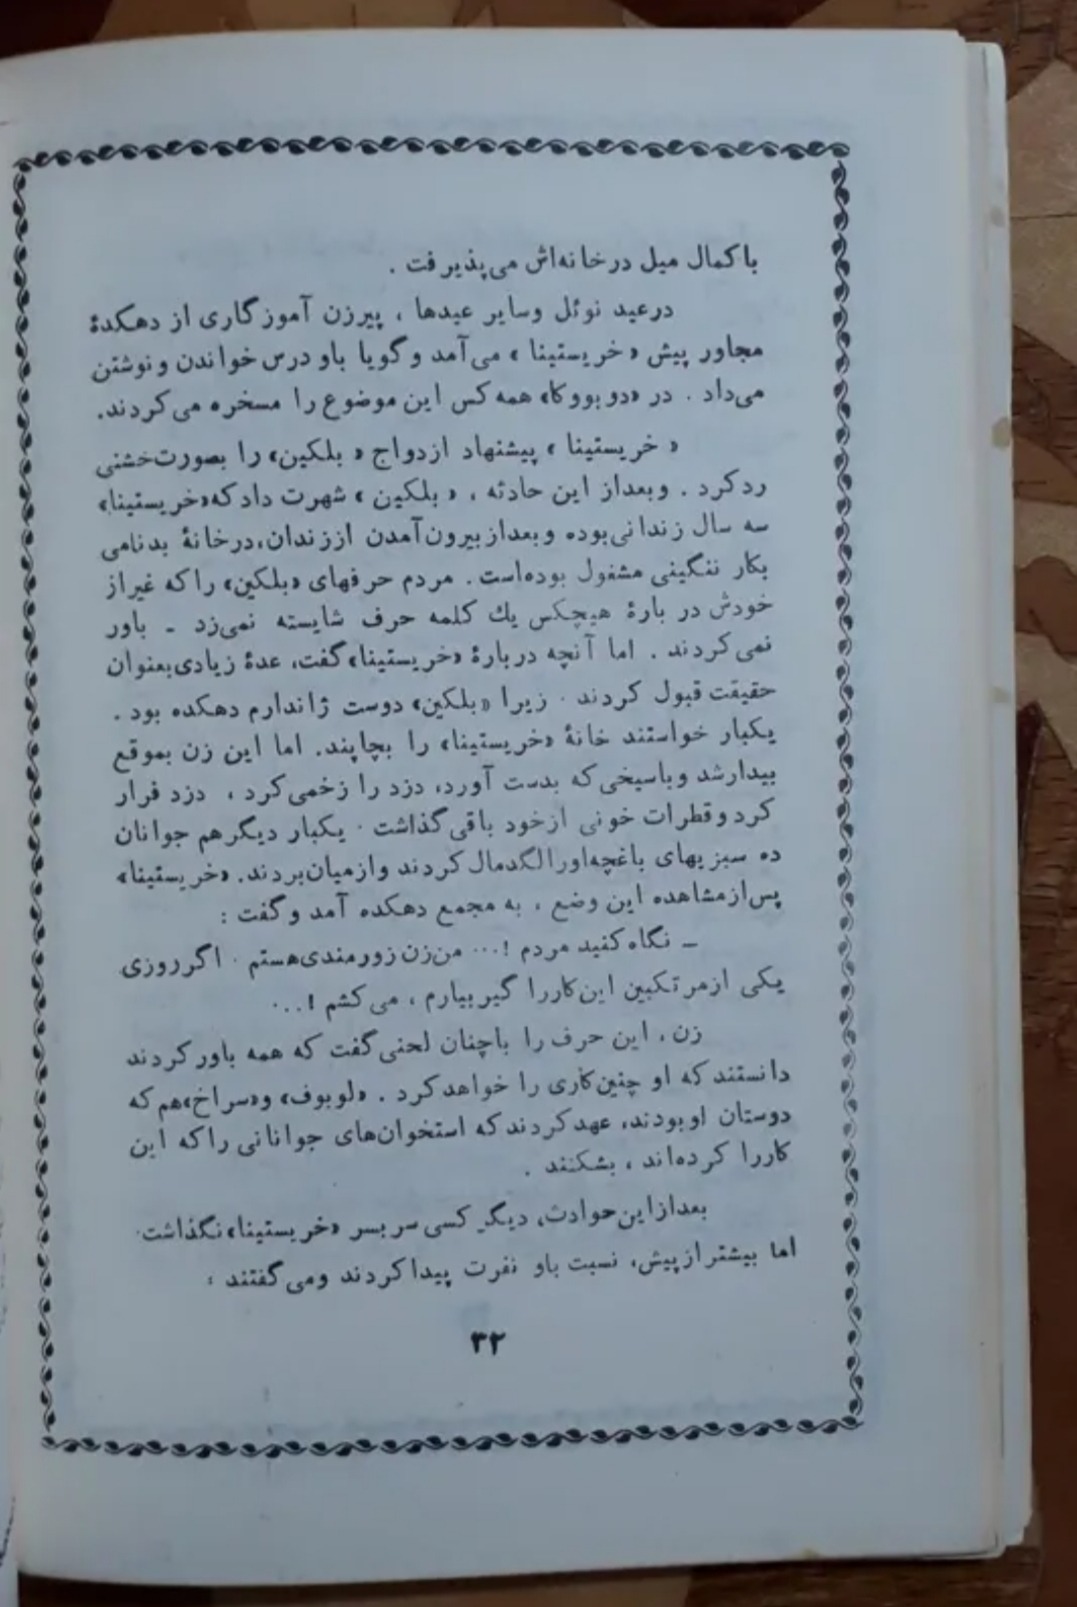 باکمال میل درخانه‌اش می‌پذیرفت .
درعید نوئل وسایر عیدها ، پیرزن آموزگاری از دهکدهٔ
مجاور پیش «خریستینا» می‌آمد وگویا باو درس خواندن ونوشتن
می‌داد . در «دوبووکا» همه کس این موضوع را مسخره می‌کردند.
«خریستینا» پیشنهاد ازدواج «بلکین» را بصورت‌خشنی
ردکرد . وبعداز این حادثه ، «بلکین» شهرت دادکه«خریستینا»
سه سال زندانی‌بوده وبعدازبیرون‌آمدن اززندان،درخانهٔ بدنامی
بکار ننگینی مشغول بوده‌است. مردم حرفهای «بلکین» راکه غیراز
خودش در بارهٔ هیچکس یك کلمه حرف شایسته نمی‌زد ـ باور
نمی‌کردند . اما آنچه دربارهٔ «خریستینا»گفت، عدهٔ زیادی‌بعنوان
حقیقت قبول کردند . زیرا «بلکین» دوست ژاندارم دهکده بود .
یکبار خواستند خانهٔ «خریستینا» را بچاپند. اما این زن بموقع
بیدارشد وباسیخی‌که بدست آورد، دزد را زخمی‌کرد ، دزد فرار
کرد وقطرات خونی ازخود باقی‌گذاشت . یکبار دیگرهم جوانان
ده سبزیهای باغچه‌اورالگدمال‌کردند وازمیان‌بردند. «خریستینا»
پس‌ازمشاهده این وضع ، به مجمع دهکده آمد وگفت :
ـ نگاه‌کنید مردم !... من‌زن زورمندی‌هستم . اگرروزی
یکی ازمرتکبین این‌کاررا گیربیارم ، می‌کشم !...
زن ، این حرف را باچنان لحنی‌گفت که همه باورکردند
دانستند که او چنین‌کاری را خواهدکرد . «لوبوف» و«سراخ»هم‌که
دوستان اوبودند، عهدکردندکه استخوان‌های جوانانی راکه این
کاررا کرده‌اند ، بشکنند .
بعدازاین‌حوادث، دیگر کسی سربسر «خریستینا»نگذاشت.
اما بیشترازپیش، نسبت باو نفرت پیداکردند ومی‌گفتند :
۳۲